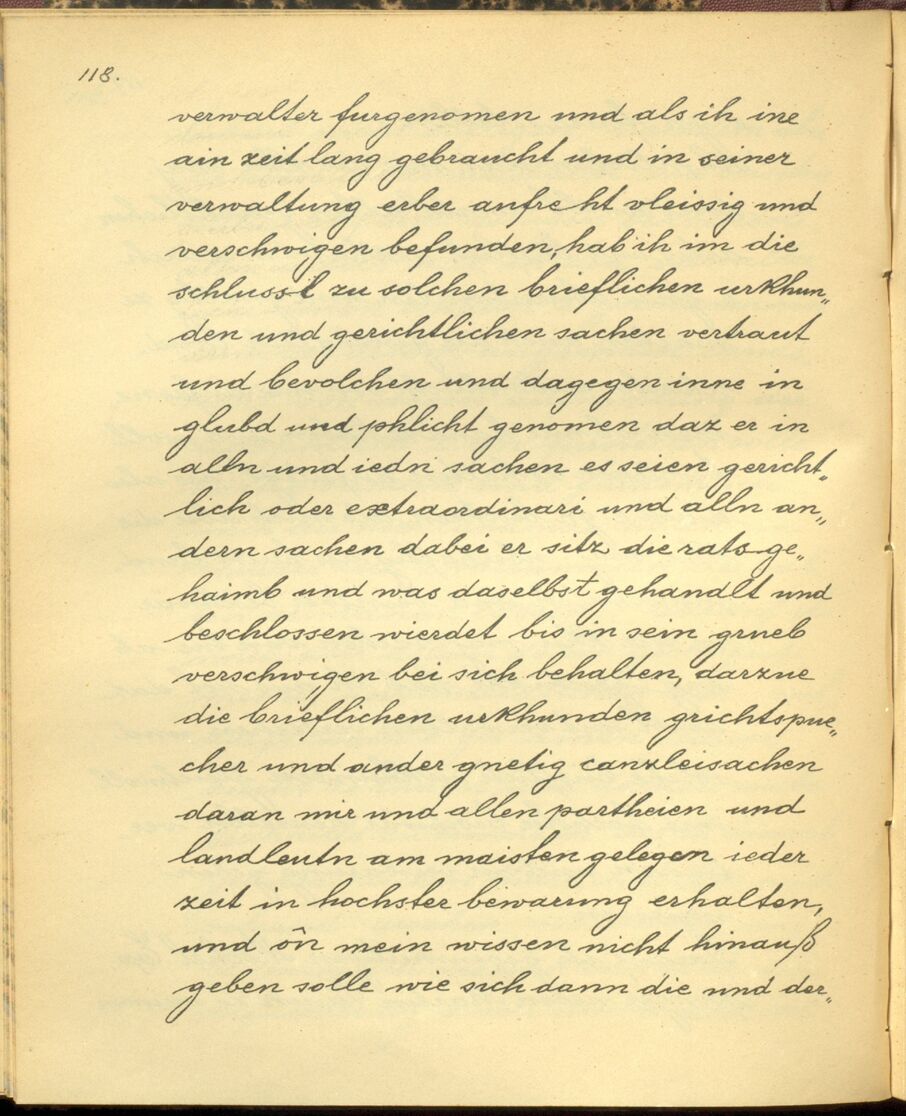 118.
verwalter furgenomen und als ih ine
ain zeit lang gebraucht und in seiner
verwaltung erber aufreht vleissig und
verschwigen befunden, hab ih im die
schlussl zu solchen brieflichen urkhun„
den und gerichtlichen sachen vertraut
und bevolchen und dagegen inne in
glubd und phlicht genomen daz er in
alln und iedn sachen es seien gericht„
lich oder extraordinari und alln an„
dern sachen dabei er sitz die rats ge„
haimb und was daselbst gehandlt und
beschlossen wierdet bis in sein grueb
verschwigen bei sich behalten, darzue
die brieflichen urkhunden grichtspue„
cher und ander gnetig canzleisachen
daran mir und allen partheien und
landleutn am maisten gelegen ieder
zeit in hochster bewarung erhalten,
und ôn mein wissen nicht hinauß
geben solle wie sich dann die und der„